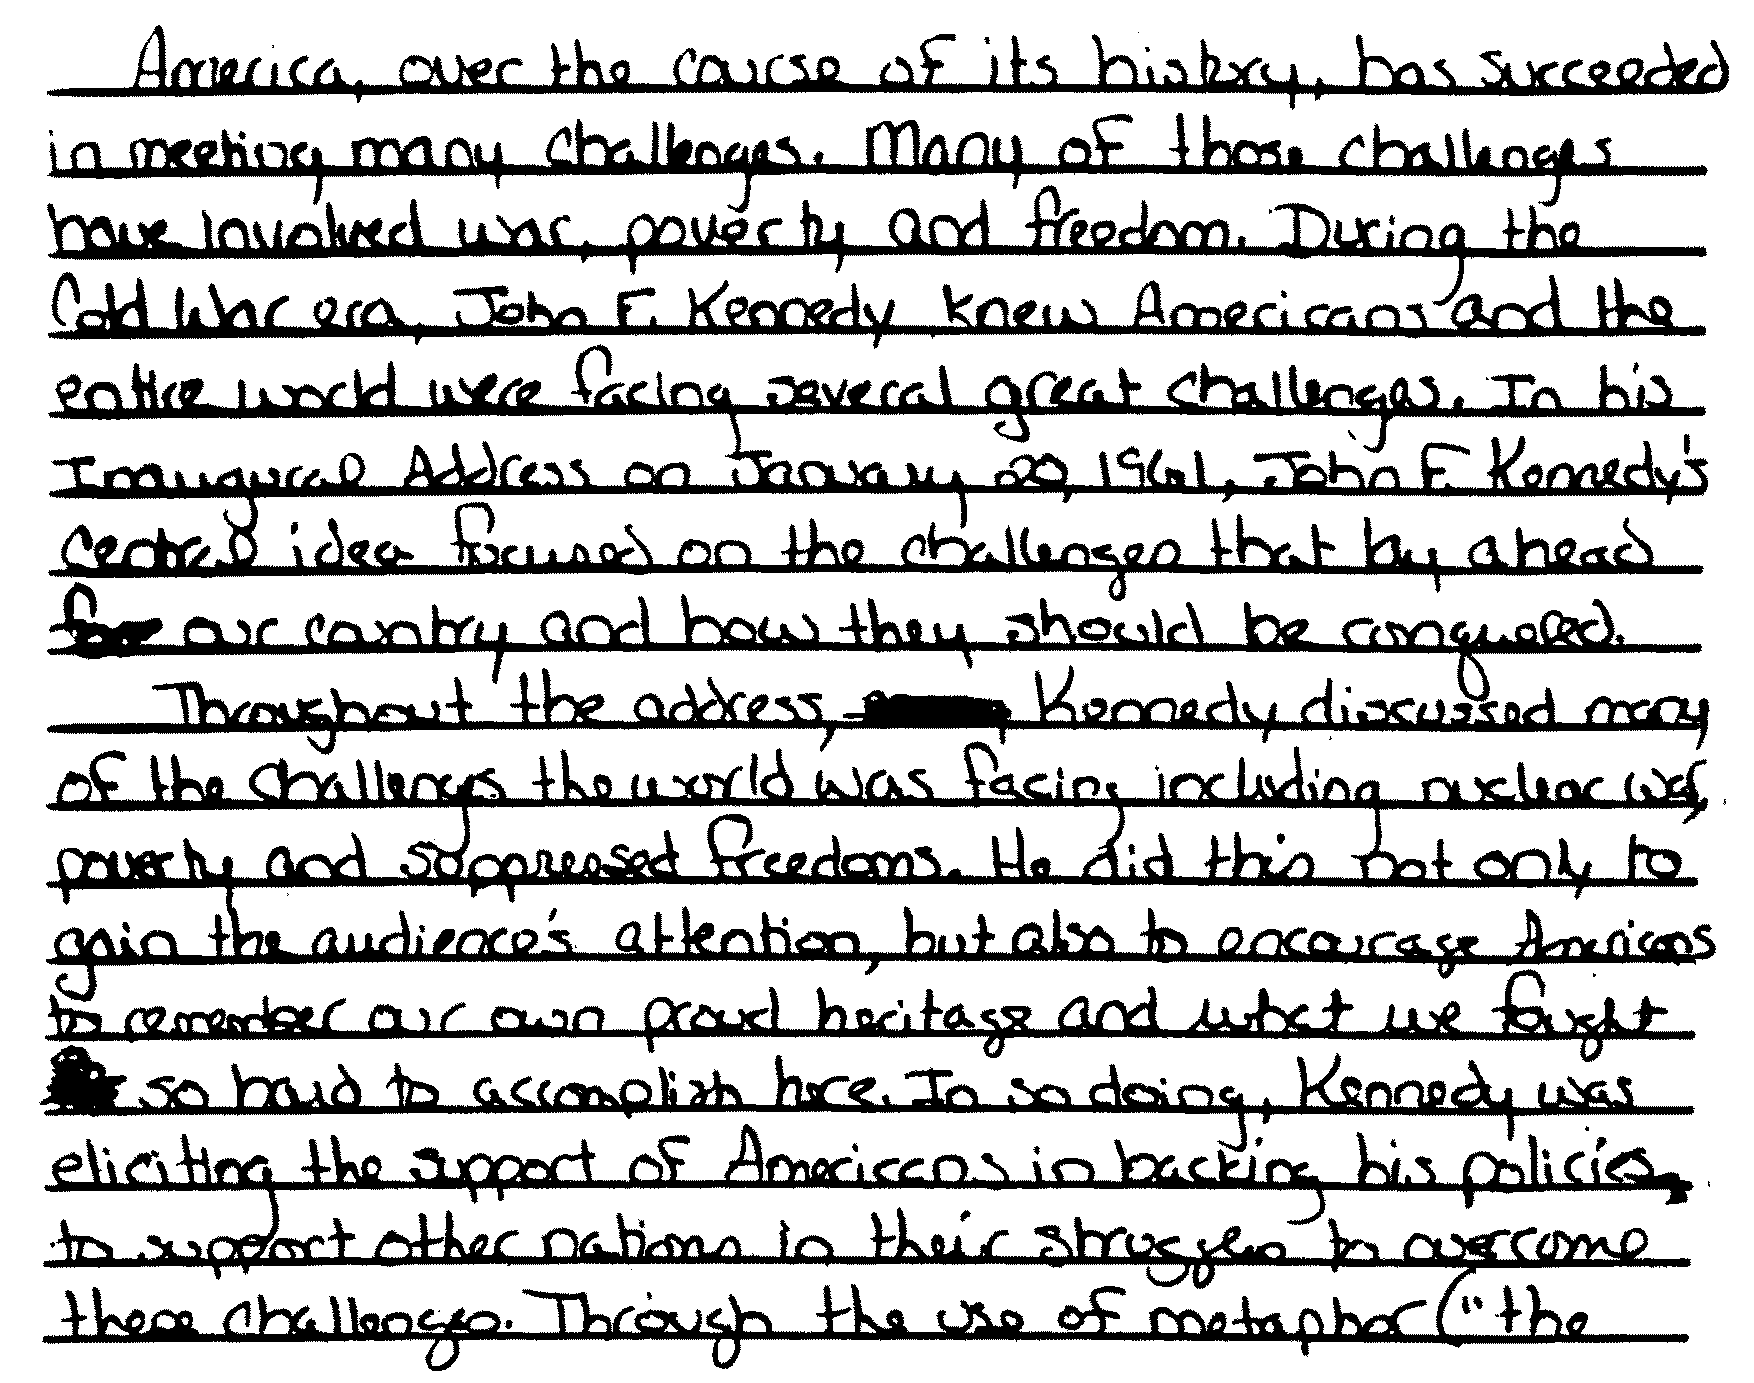 America, over the course of its history, has succeeded
in meeting many challenges. Many of those challenges
have involved war, poverty and freedom. During the
Cold War era, John F. Kennedy knew Americans and the
entire world were facing several great challenges. In his
Inaugural Address on January 20, 1961, John F. Kennedy's
central idea focused on the challenges that lay ahead
for our country and how they should be conquered.
Throughout the address, Kennedy discussed many
of the challenges the world was facing including nuclear war,
poverty and suppressed freedoms. He did this not only to
gain the audience's attention, but also to encourage Americans
to remember our own proud heritage and what we fought
so hard to accomplish here. In so doing, Kennedy was
eliciting the support of Americans in backing his policies
to support other nations in their struggles to overcome
these challenges. Through the use of metaphor ("the